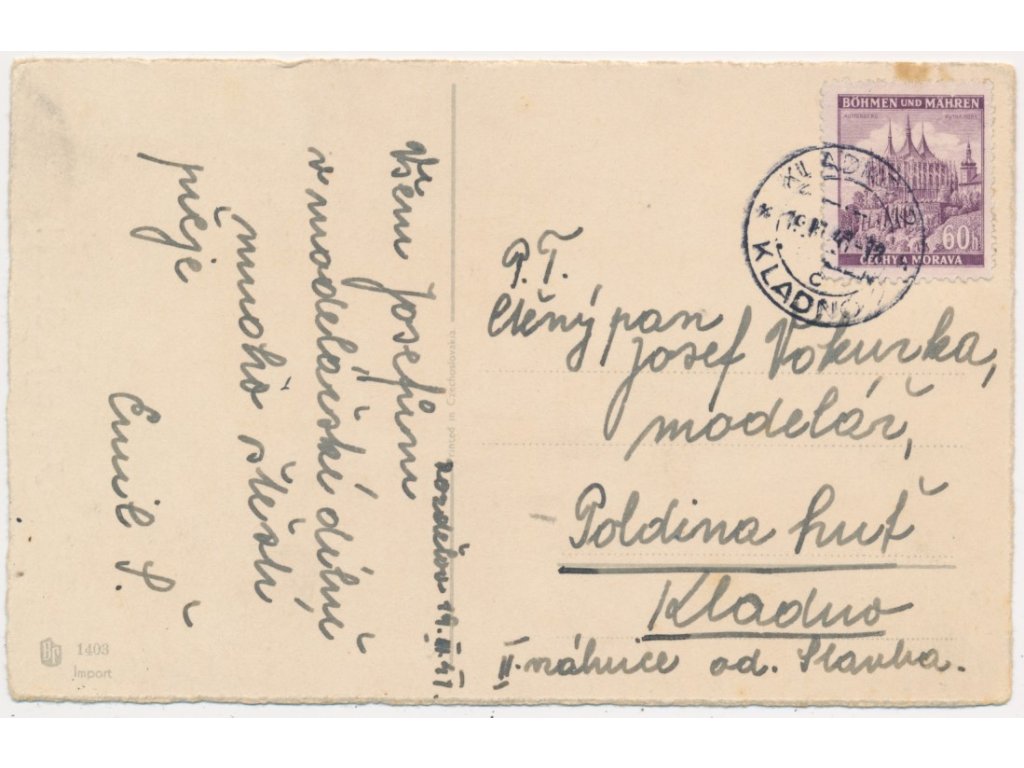 Všem Josefům
v modelářské dílně
mnoho štěstí
přeje
Emil Š.
Rozdělov 19. III. 41.
Printed in Czechoslovakia
1403
Import
BÖHMEN UND MÄHREN
60h
ČECHY A MORAVA
KLADNO
KLADNO
P. T.
Ctěný pan
Josef Vokurka,
modelář,
Poldina huť
Kladno
II. náhrice od. Slavba.